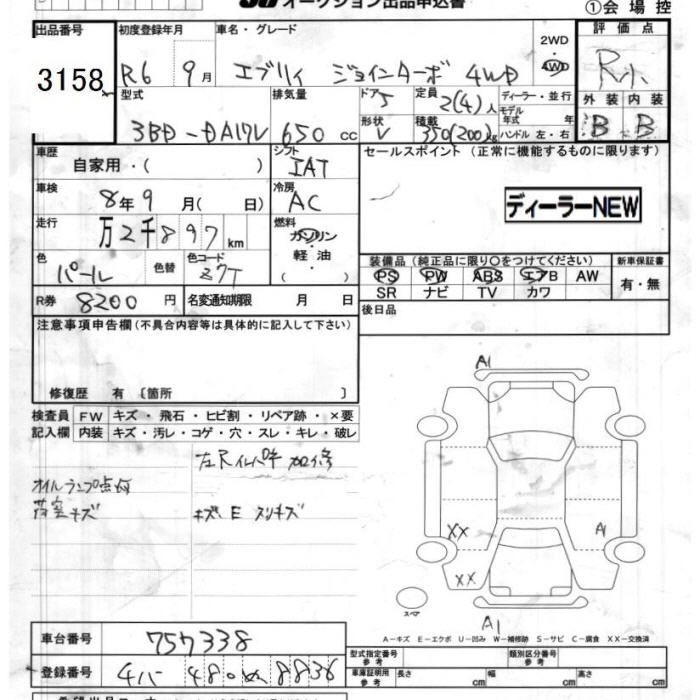 オークション出品申込書
①会場控
出品番号 3158
初度登録年月 R6 9月
車名・グレード エブリイ ジョインターボ 4WD
2WD 4WD
評価点 R
外装 内装 B B
型式 3BD-DA17V
排気量 650 cc
ドア 5
形状 V
定員 2(4)人
積載 350(200)kg
ディーラー・並行
モデル年式 年式
ハンドル 左・右
車歴 自家用・( )
シフト IAT
セールスポイント(正常に機能するものに限ります)
車検 8年9月( 日)
冷房 AC
ディーラーNEW
走行 万2千897km
燃料 ガソリン・軽油・( )
色 パール
色替
色コード Z7T
装備品(純正品に限り○をつけてください)
新車保証書
PS PW ABS エアB AW
有・無
SR ナビ TV カワ
R券 8200円
名変通知期限 月 日
後日品
注意事項申告欄(不具合内容等は具体的に記入して下さい)
修復歴 有〔箇所 〕
検査員記入欄
FW キズ・飛石・ヒビ割・リペア跡・×要
内装 キズ・汚レ・コゲ・穴・スレ・キレ・破レ
オイルランプ点灯
荷室キズ
キズ、E スリキズ
A1
XX
A1
XX
スペア
A1
A-キズ E-エクボ U-凹み W-補修跡 S-サビ C-腐食 XX-交換済
車台番号 757338
型式指定番号 参考
類別区分番号 参考
登録番号 480 8836
車庫証明用 参考 長さ cm 幅 cm 高さ cm